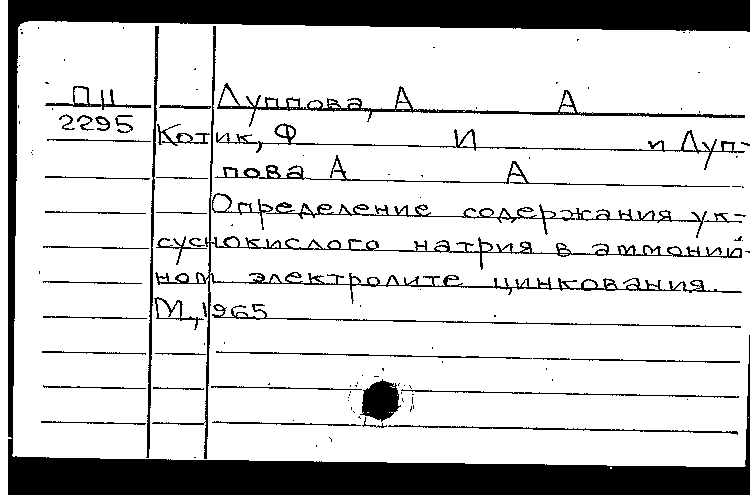 П11 Луппова, А А
2295 Котик, Ф И и Луп-
пова А А
Определение содержания ук-
суснокислого натрия в аммоний-
ном электролите цинкования.
М., 1965